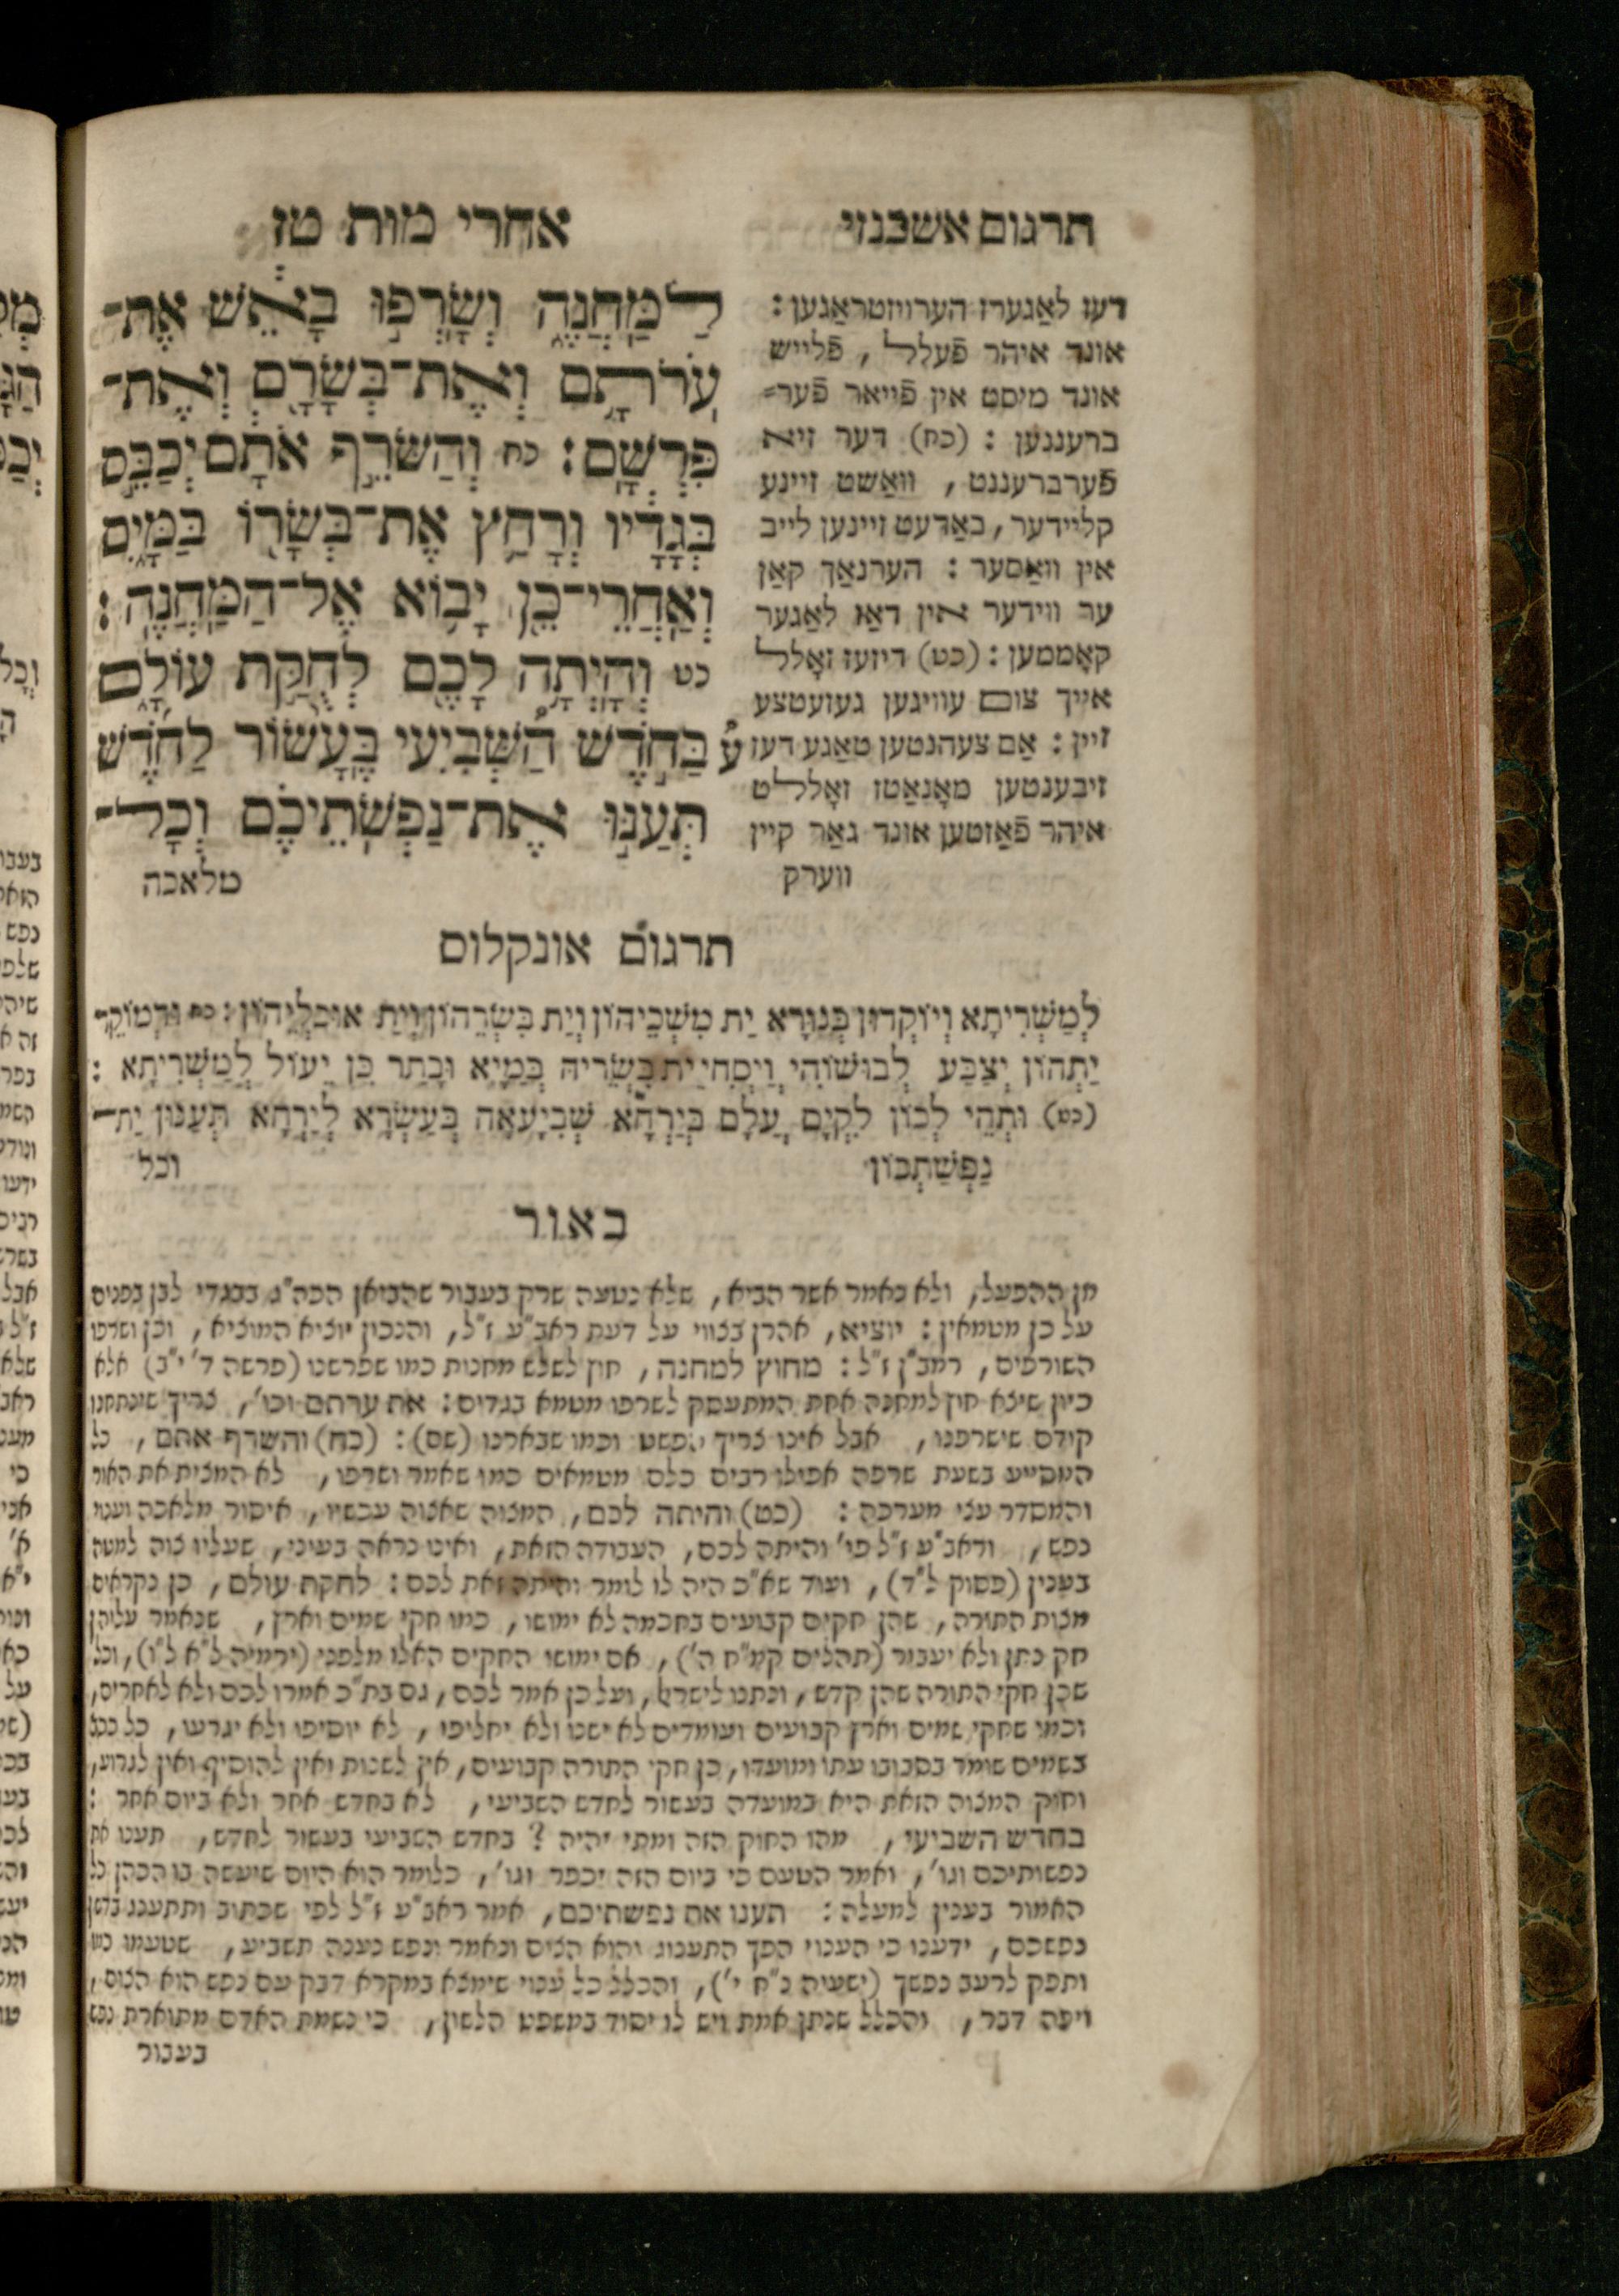 אחרי מות טז
תרגום אשכנזי
לַמַּחֲנֶה וְשָׂרְפוּ בָאֵשׁ אֶת־
עֹרֹתָם וְאֶת־בְּשָׂרָם וְאֶת־
פִּרְשָׁם: כח וְהַשֹּׂרֵף אֹתָם יְכַבֵּס
בְּגָדָיו וְרָחַץ אֶת־בְּשָׂרוֹ בַּמָּיִם
וְאַחֲרֵי־כֵן יָבוֹא אֶל־הַמַּחֲנֶה:
כט וְהָיְתָה לָכֶם לְחֻקַּת עוֹלָם
בַּחֹדֶשׁ הַשְּׁבִיעִי בֶּעָשׂוֹר לַחֹדֶשׁ
תְּעַנּוּ אֶת־נַפְשֹׁתֵיכֶם וְכָל־
מלאכה
דעז לאַגערז הערויזטראַגען:
אונד איהר פֿעלל, פֿלייש
אונד מיסט אין פֿייאר פֿער=
ברעננען: (כח) דער זיא
פֿערברעננט, וואַשט זיינע
קליידער, באַדעט זיינען לייב
אין וואַסער: הערנאַך קאַן
ער ווידער אין דאַז לאַגער
קאָממען: (כט) דיזעז זאָלל
אייך צום עוויגען געזעטצע
זיין: אַם צעהנטען טאַגע דעז
זיבענטען מאָנאַטז זאָללט
איהר פֿאַזטען אונד גאַר קיין
ווערק
תרגום אונקלוס
לְמַשְׁרִיתָא וְיוֹקְדוּן בְּנוּרָא יַת מַשְׁכֵיהוֹן וְיַת בִּשְׂרֵהוֹן וְיַת אוּכְלֵיהוֹן: כח וּדְמוֹקֵד
יַתְהוֹן יְצַבַּע לְבוּשׁוֹהִי וְיַסְחֵי יַת בִּשְׂרֵיהּ בְּמַיָּא וּבָתַר כֵּן יֵעוֹל לְמַשְׁרִיתָא:
(כט) וּתְהֵי לְכוֹן לִקְיָם עָלָם בְּיַרְחָא שְׁבִיעָאָה בְּעַשְׂרָא לְיַרְחָא תְּעַנּוּן יַת־
נַפְשָׁתְכוֹן
וכל
באור
מן ההפעל, ולא נאמר אשר הביא, שלא נטעה שרק בעבור שהביאן הכה"ג בבגדי לבן בפנים
על כן מטמאין: יוציא, אהרן בצווי על דעת ראב"ע ז"ל, והנכון יוציא המוציא, וכן ושרפו
השורפים, רמב"ן ז"ל: מחוץ למחנה, חוץ לשלש מחנות כמו שפרשנו (פרשה ד' י"ב) אלא
כיון שיצא חוץ למחנה אחת המתעסק לשרפו מטמא בגדים: את ערתם וכו', צריך שינתחנו
קודם שישרפנו, אבל אינו צריך הפשט וכמו שבארנו (שם): (כח) והשרף אתם, כל
המסייע בשעת שרפה אפילו רבים כלם מטמאים כמו שאמר ושרפו, לא המצית את האור
והמסדר עצי מערכה: (כט) והיתה לכם, המצוה שאצוה עכשיו, איסור מלאכה וענוי
נפש, וראב"ע ז"ל פי' והיתה לכם, העבודה הזאת, ואינו נראה בעיני, שעליו צוה למטה
בענין (פסוק ל"ד), ועוד שא"כ היה לו לומר והיתה זאת לכם: לחקת עולם, כן נקראים
מצות התורה, שהן חקים קבועים בחכמה לא ימושו, כמו חקי שמים וארץ, שנאמר עליהן
חק נתן ולא יעבור (תהלים קמ"ח ה'), אם ימושו החקים האלו מלפני (ירמיה ל"א ל"ו), וכל
שכן חקי התורה שהן קדש, ונתנו לישראל, ועל כן אמר לכם, גם בת"כ אמרו לכם ולא לאחרים,
וכמו שחקי שמים וארץ קבועים ועומדים לא ישנו ולא יחליפו, לא יוסיפו ולא יגרעו, כל ככב
בשמים שומר בסבובו עתו ומועדו, כן חקי התורה קבועים, אין לשנות ואין להוסיף ואין לגרוע,
וחוק המצוה הזאת היא במועדה בעשור לחדש השביעי, לא בחדש אחר ולא ביום אחר:
בחדש השביעי, מהו החוק הזה ומתי יהיה? בחדש השביעי בעשור לחדש, תענו את
נפשותיכם וגו', ואמר הטעם כי ביום הזה יכפר וגו', כלומר הוא היום שיעשה בו הכהן כל
האמור בענין למעלה: תענו את נפשתיכם, אמר ראב"ע ז"ל לפי שכתוב ותתענג בדשן
נפשכם, ידענו כי הענוי הפך התענוג והוא הצום וכאמר ונפש נענה תשביע, שטעמו כמו
ותפק לרעב נפשך (ישעיה נ"ח י'), והכלל כל ענוי שימצא במקרא דבק עם נפש הוא הצום,
ויפה דבר, והכלל שנתן אמת ויש לו יסוד במשפט הלשון, כי נשמת האדם מתוארת נפש
בעבור